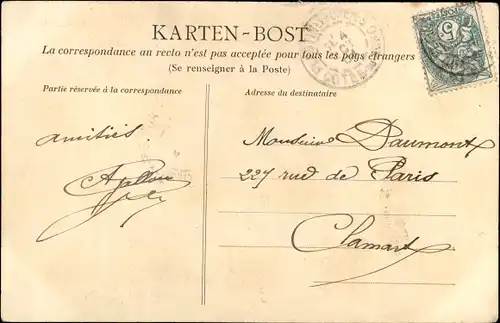 KARTEN-BOST
La correspondance au recto n'est pas acceptée pour tous les pays étrangers
(Se renseigner à la Poste)
Partie réservée à la correspondance
Adresse du destinataire
amitiés
Monsieur Daumont
227 rue de Paris
Clamart
5